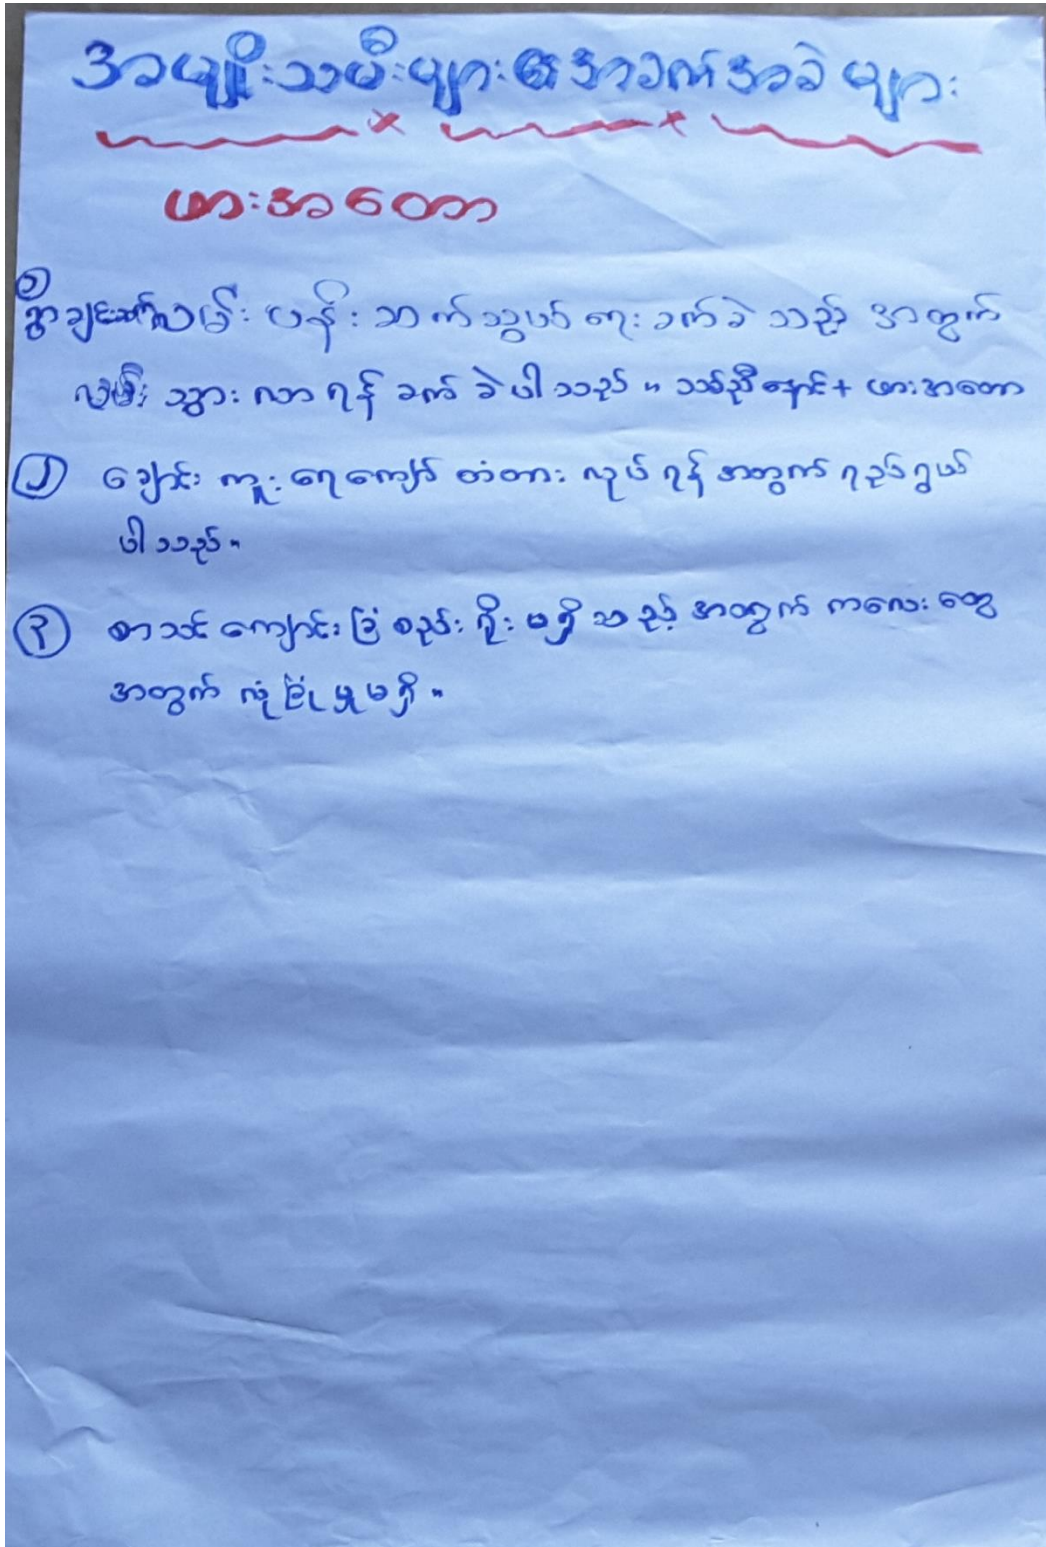 အမျိုးသမီးများ၏အခက်အခဲများ
ဖားအတော
၁ ရွာချင်းဆက်လမ်းပန်းဆက်သွယ်ရေးခက်ခဲသည့်အတွက်
လမ်းသွားလာရန်ခက်ခဲပါသည်။ သစ်ညီနောင် + ဖားအတော
၂ ချောင်းကူးရေကျော်တံတားလုပ်ရန်အတွက်ရည်ရွယ်
ပါသည်။
၃ စာသင်ကျောင်းခြံစည်းရိုးမရှိသည့်အတွက်ကလေးတွေ
အတွက်လုံခြုံမှုမရှိ။